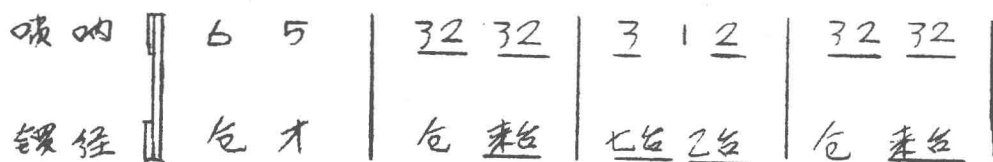 唢呐 6 5 | 32 32 | 3 1 2 | 32 32 |
锣经 仓 才 | 仓 来台 | 七台 乙台 | 仓 来台 |